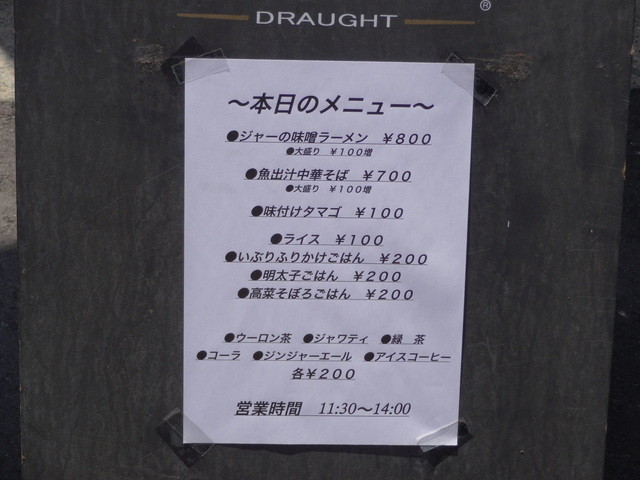 DRAUGHT ®
～本日のメニュー～
●ジャーの味噌ラーメン　￥８００
●大盛り　￥１００増
●魚出汁中華そば　￥７００
●大盛り　￥１００増
●味付けタマゴ　￥１００
●ライス　￥１００
●いぶりふりかけごはん　￥２００
●明太子ごはん　￥２００
●高菜そぼろごはん　￥２００
●ウーロン茶　●ジャワティ　●緑　茶
●コーラ　●ジンジャーエール　●アイスコーヒー
各￥２００
営業時間　11:30～14:00